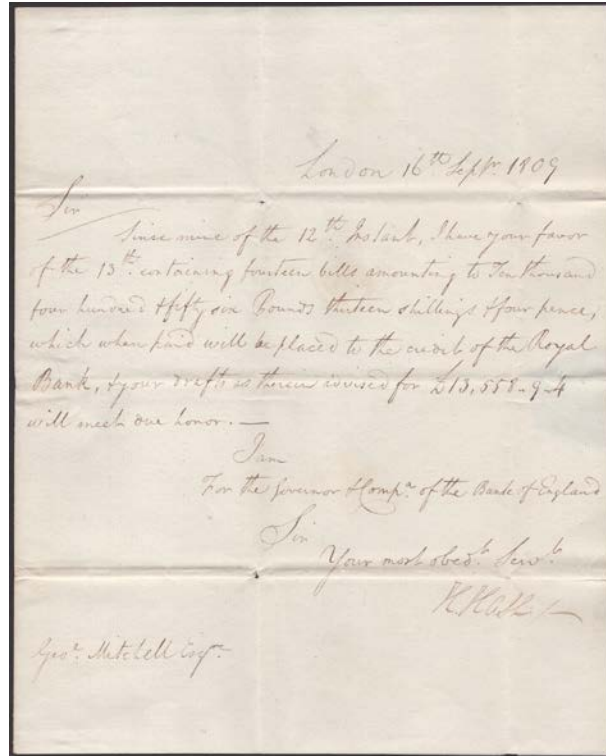 London 16th Septr. 1809
Sir
Since mine of the 12th. Instant, I have your favor
of the 13th. containing fourteen bills amounting to Ten thousand
four hundred & fifty six Pounds thirteen shillings & four pence,
which when paid will be placed to the credit of the Royal
Bank, & your drafts as therein advised for £13,558-9-4
will meet due honor. —
I am
For the Governor & Compa. of the Bank of England
Sir
Your most obedt. Servt.
Geor. Mitchell Esqr.